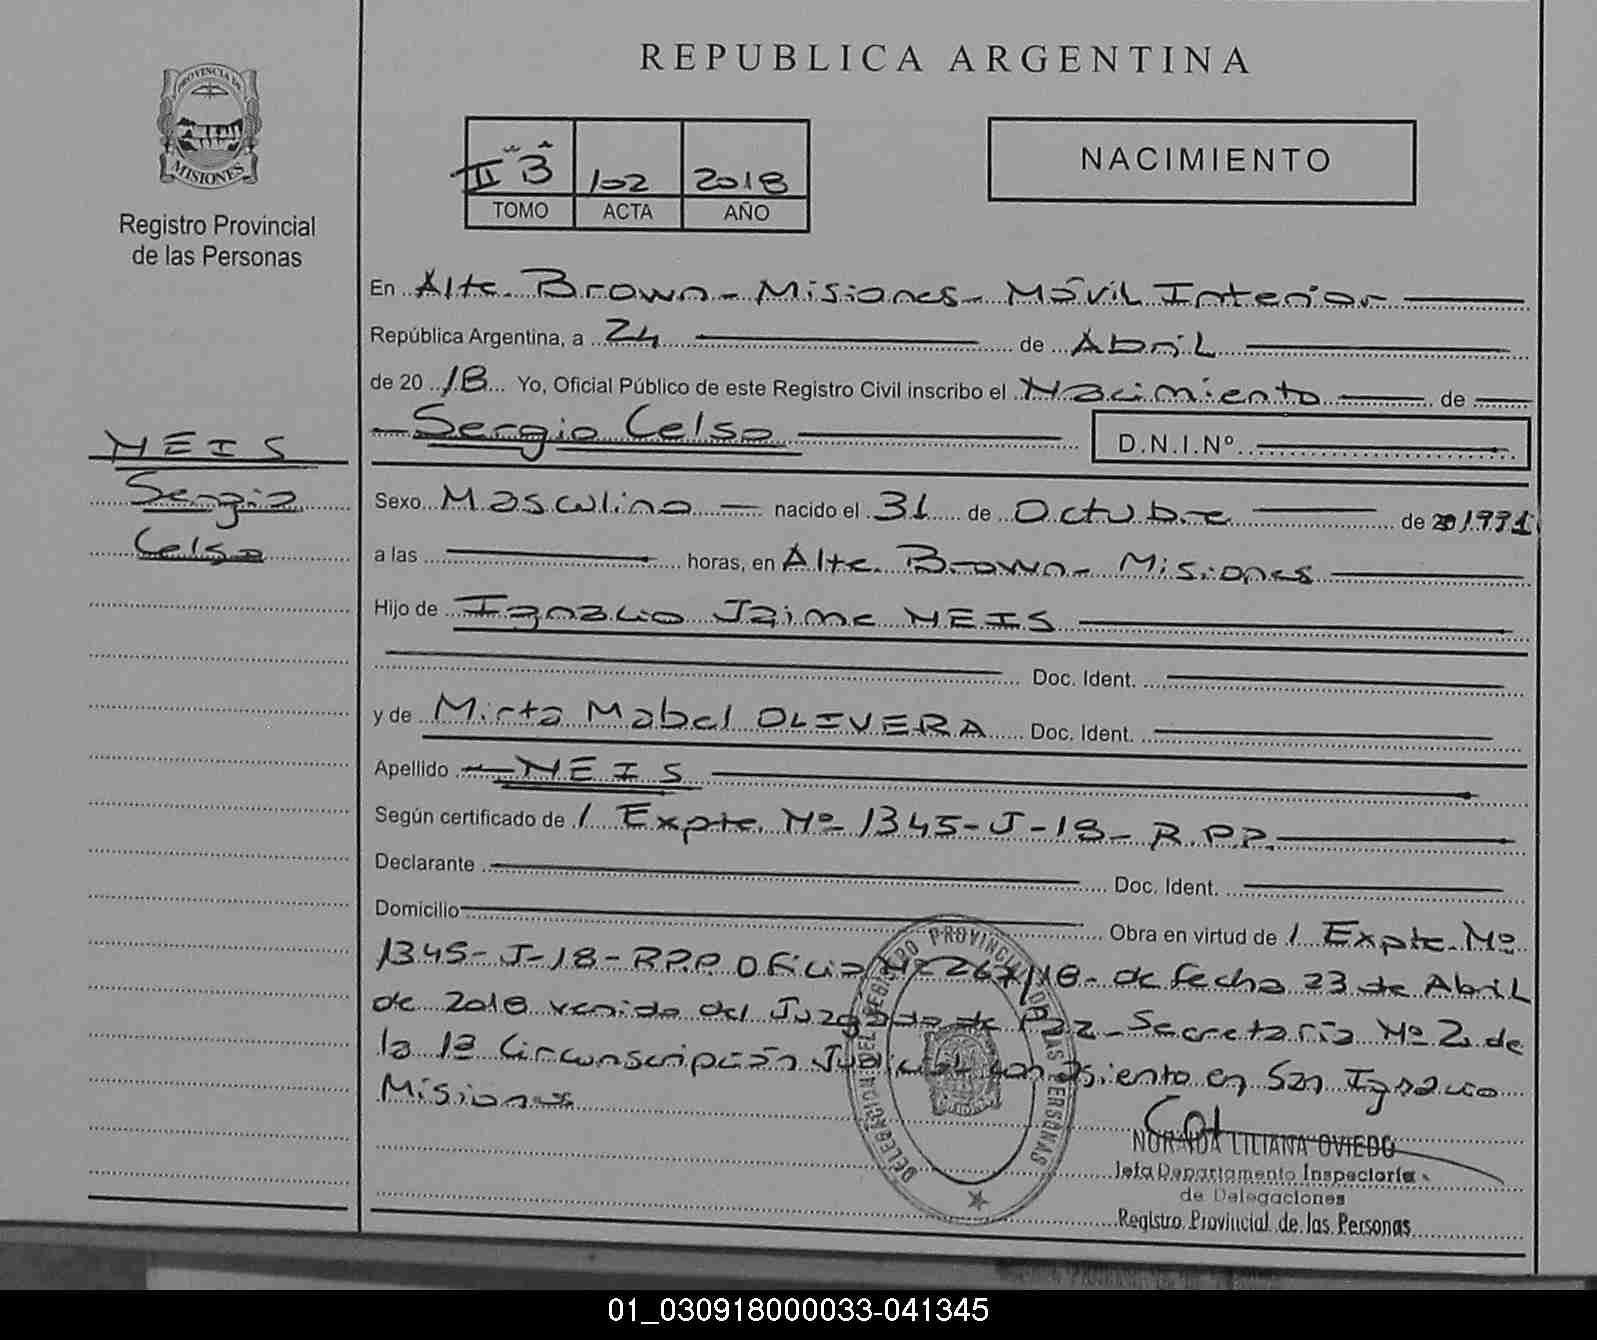 REPUBLICA ARGENTINA
PROVINCIA DE
MISIONES
Registro Provincial
de las Personas
II "B" 102 2018
TOMO ACTA AÑO
NACIMIENTO
En Alte. Brown - Misiones - Móvil Interior
República Argentina, a 24 de Abril
de 20 18 Yo, Oficial Público de este Registro Civil inscribo el Nacimiento de
Sergio Celso D.N.I.Nº
NEIS
Sergio
Celso
Sexo Masculino nacido el 31 de Octubre de 20 1991
a las horas, en Alte. Brown - Misiones
Hijo de Ignacio Jaime NEIS
Doc. Ident.
y de Mirta Mabel OLIVERA Doc. Ident.
Apellido NEIS
Según certificado de / Expte. Nº 1345-J-18- R.P.P.
Declarante Doc. Ident.
Domicilio Obra en virtud de / Expte. Nº
1345-J-18-R.P.P. Oficio Nº 267/18- de fecha 23 de Abril
de 2018 venido del Juzgado de Paz - Secretaría Nº 2 de
la 1ª Circunscripción Judicial con asiento en San Ignacio
Misiones
DELEGACION DEL REGISTRO PROVINCIAL DE LAS PERSONAS
NORAIDA LILIANA OVIEDO
Jefa Departamento Inspectoría
de Delegaciones
Registro Provincial de las Personas
01_030918000033-041345